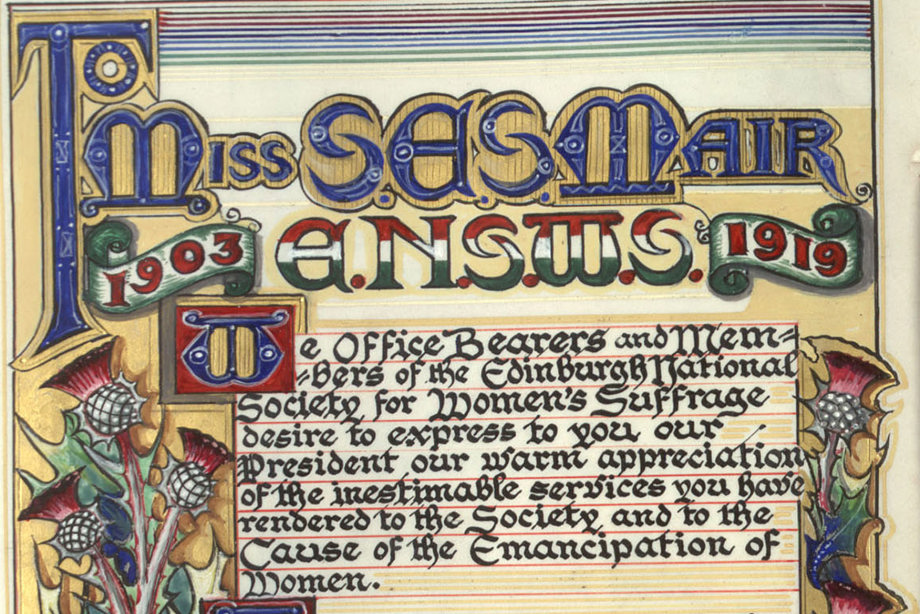 To
Miss S.E.S. Mair
1903 E.N.S.W.S. 1919
We Office Bearers and Mem=
=bers of the Edinburgh National
Society for Women's Suffrage
desire to express to you our
President our warm appreciation
of the inestimable services you have
rendered to the Society and to the
Cause of the Emancipation of
Women.